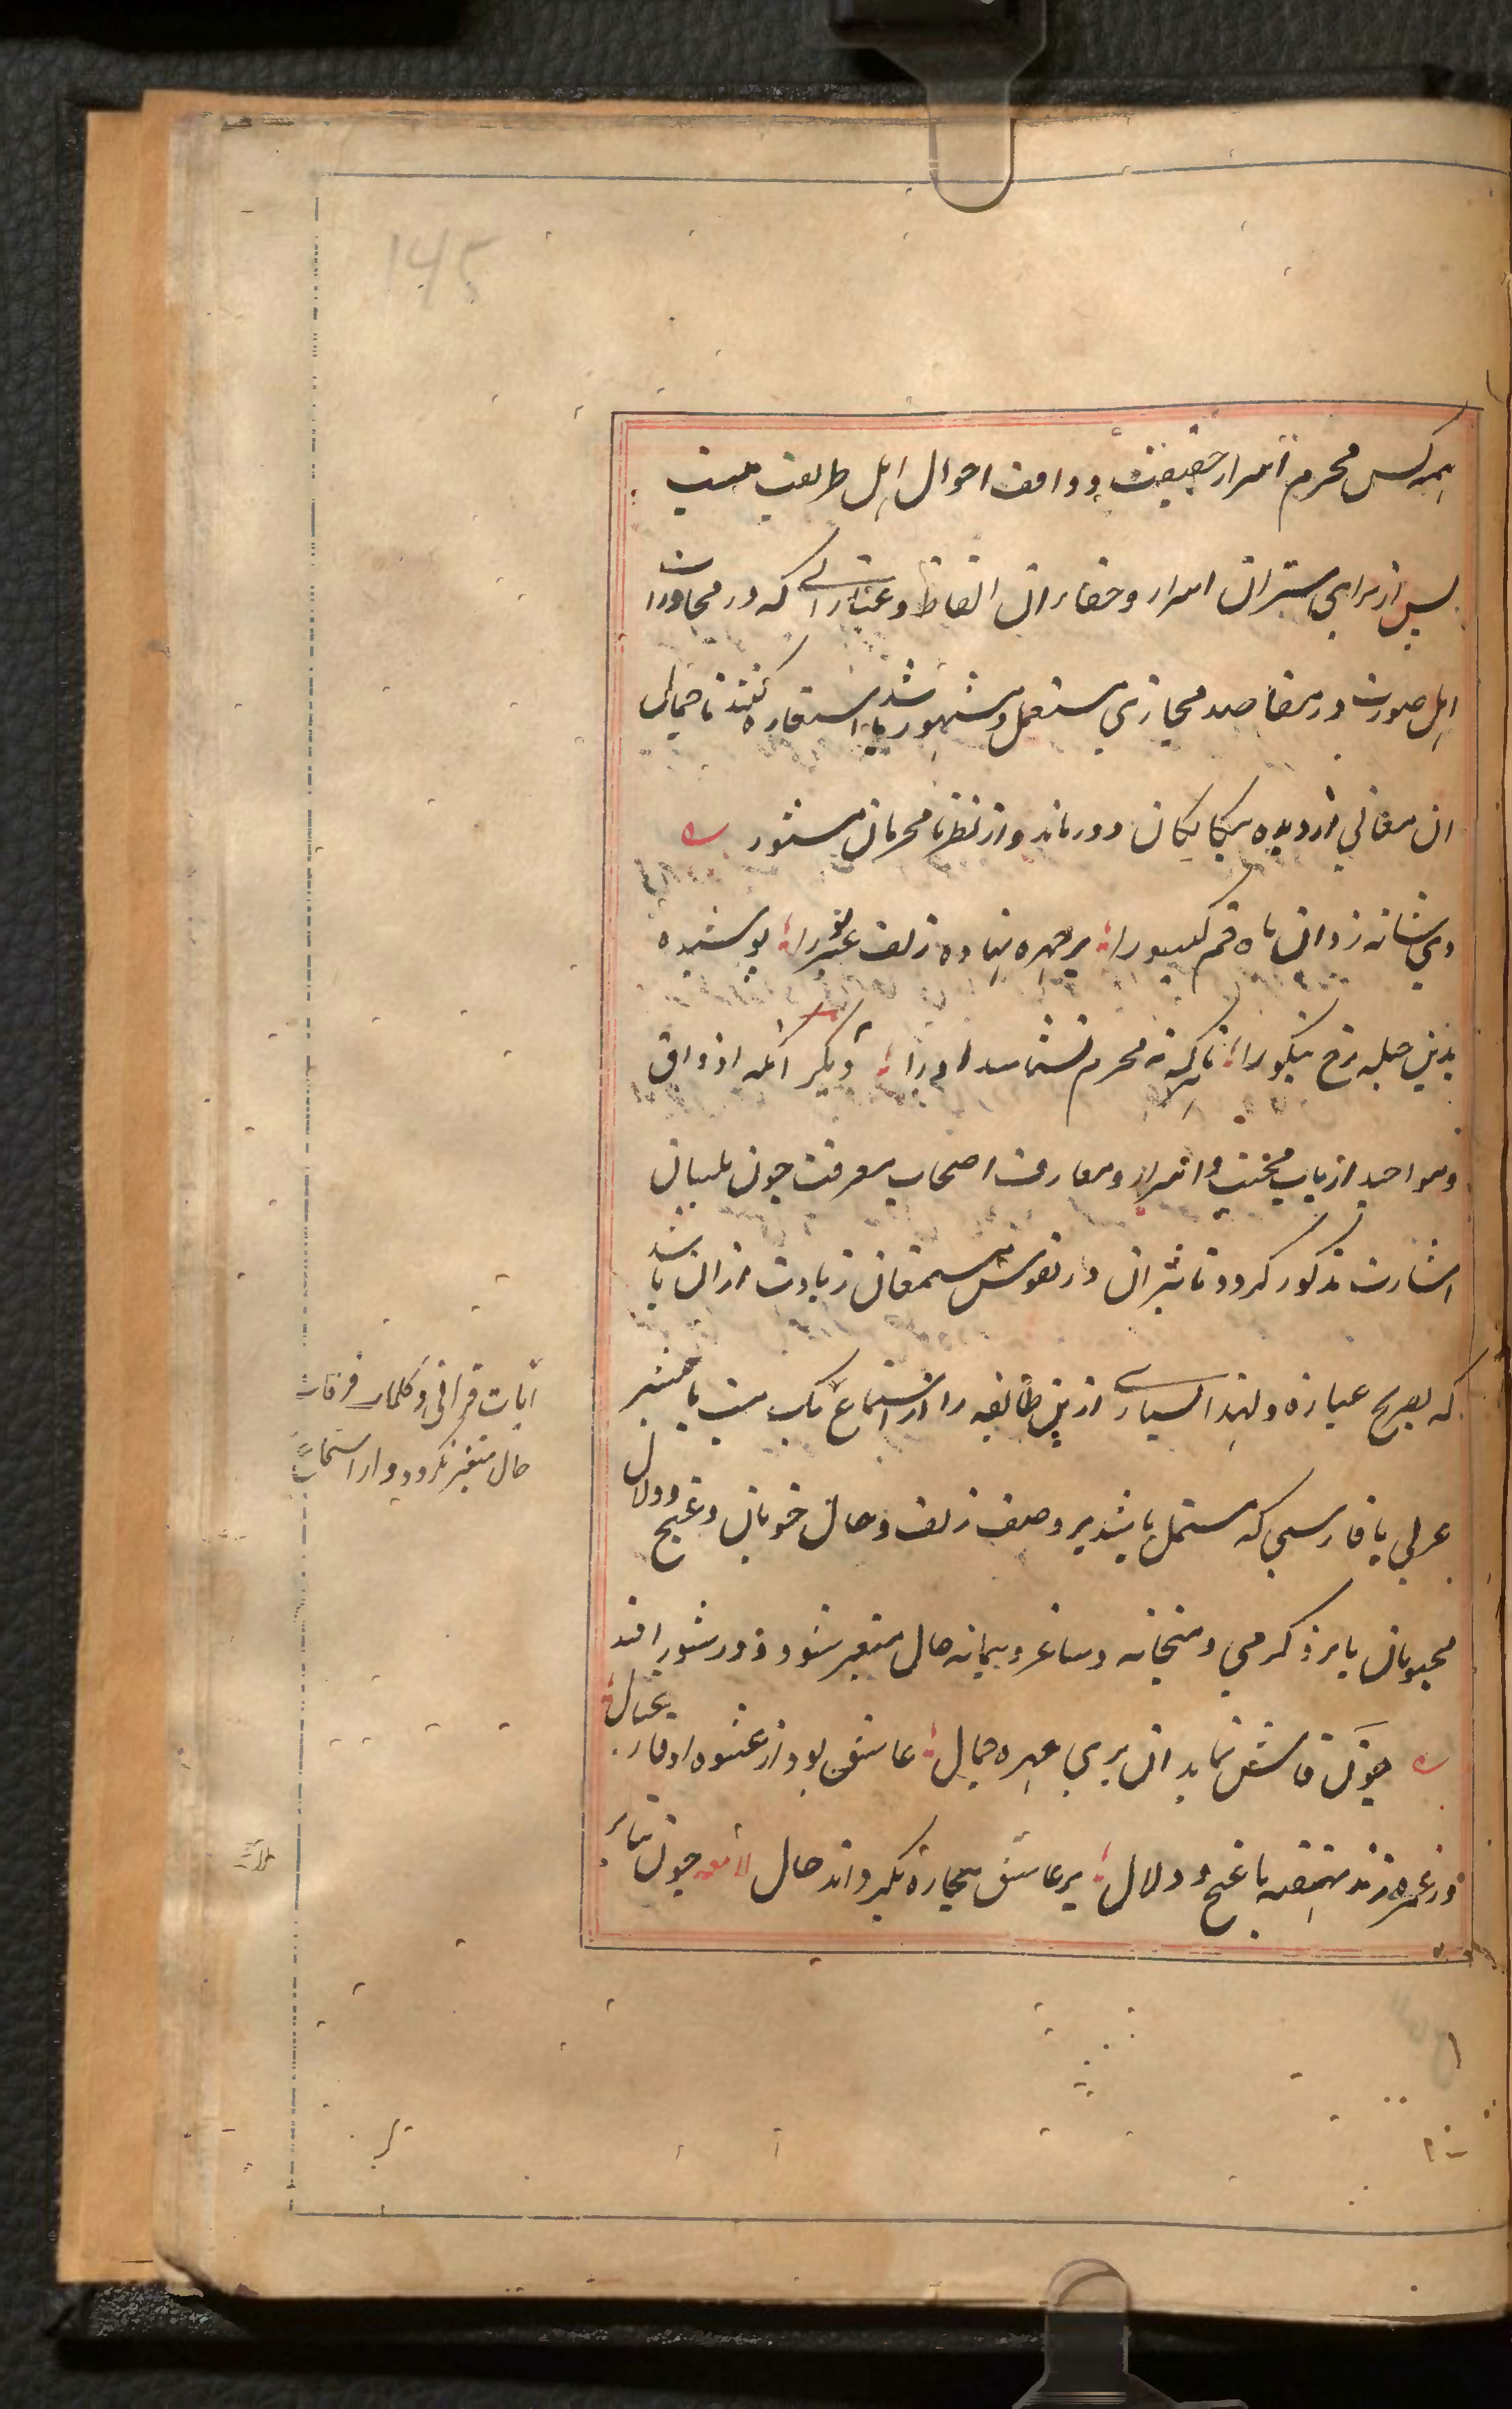 همه کس محرم اسرار حقیقت و واقف احوال اهل طریقت نیست
پس از برای ستر ان اسرار و خفاء ان الفاظ و عباراتی که در محاورات
اهل صورت در مقاصد مجازی مستعمل و مشهور باشد استعاره کنند تا جمال
ان معانی از دیده بیکانکان دور ماند و از نظر نامحرمان مستور
دی شانه زد ان ماه خم کیسو را بر چهره نهاده زلف عنبر بو را پوشیده
بدین حیله رخ نیکو را تا هر که نه محرم نشناسد او را دیکر آنکه اذواق
و مواجید ارباب محبت و اسرار و معارف اصحاب معرفت چون بلسان
اشارت مذکور کردد تاثیر ان در نفوس مستمعان زیادت از ان باشد
که بصریح عبارة و لهذا بسیاری ازین طائفه را از استماع
آیات قرآنی و کلمات فرقانی
حال متغیر نکردد و از استماع
یک بیت یا بیشتر
عربی یا فارسی که مشتمل باشد بر وصف زلف و خال خوبان و غنج و دلال
محبوبان یا بر ذکر می و میخانه و ساغر و پیمانه حال متغیر شود و در شور افتد
چون فاش نماید ان پری چهره جمال عاشق بود از عشوه او فارغ بال
ور غمزه زند نهفته با غنج و دلال بر عاشق بیچاره بکرداند حال لامعه چون